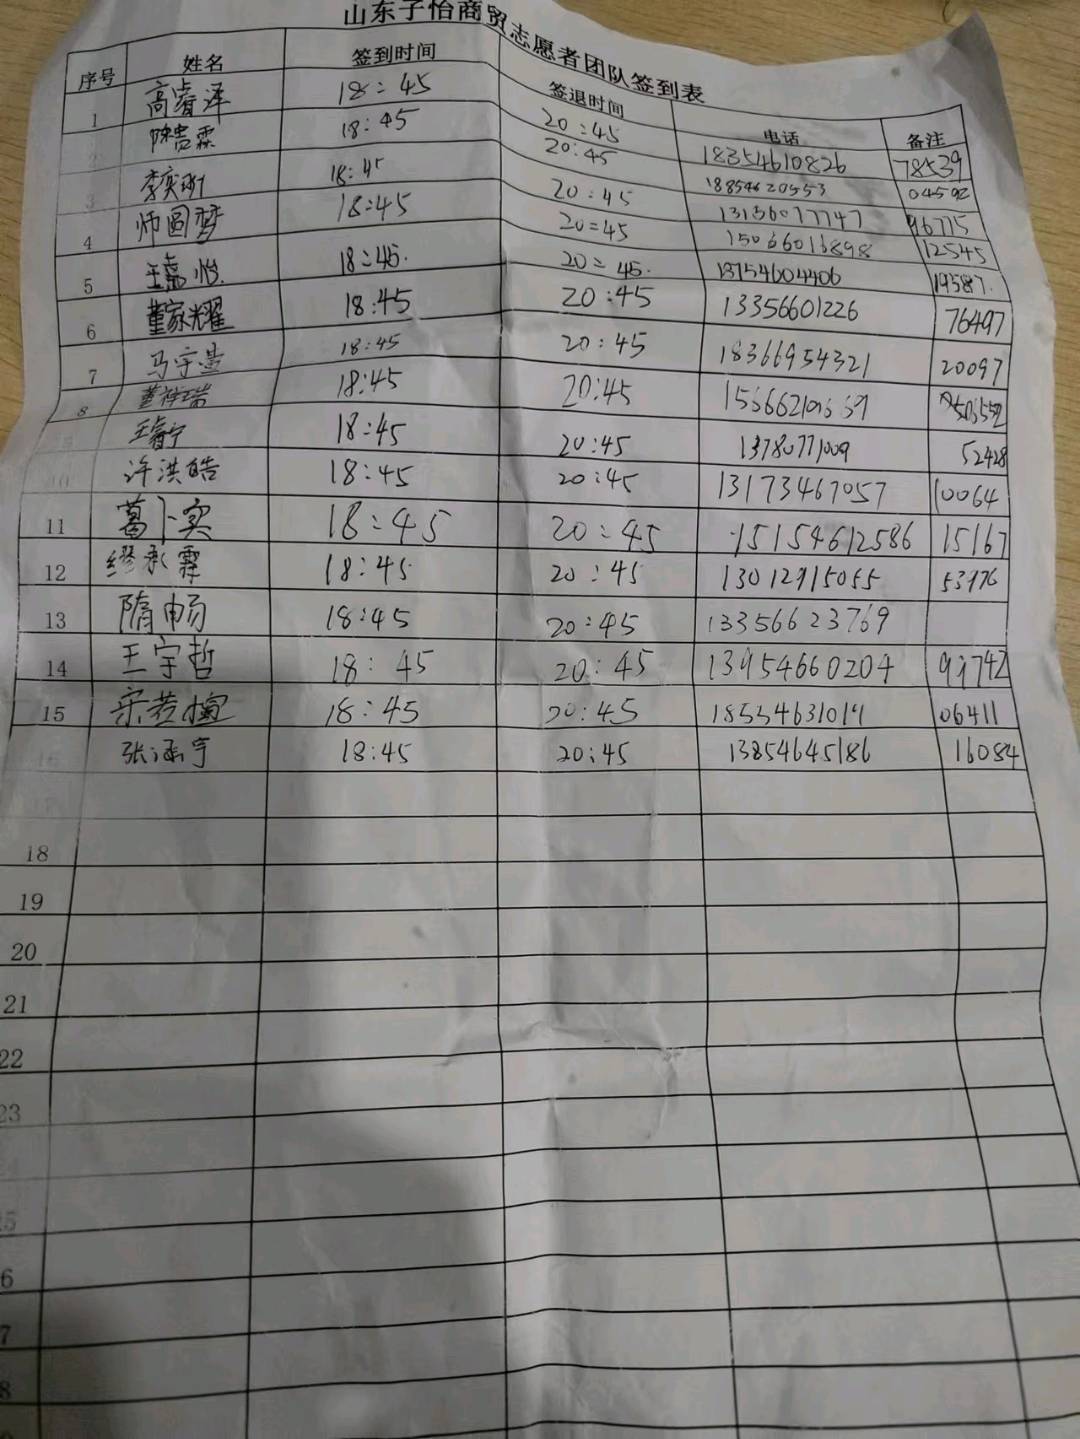 山东子怡商贸志愿者团队签到表
序号 姓名 签到时间 签退时间 电话 备注
1 高睿泽 18:45 20:45 18354610826 78539
2 18:45 20:45 18854620553 04592
3 18:45 20:45 13156077747 96775
4 师圆梦 18:45 20:45 15066016898 12545
5 18:45. 20:45. 18754604406 19587.
6 董家耀 18:45 20:45 13356601226 76497
7 马宇 18:45 20:45 18366954321 20097
8 18:45 20:45
9 王睿宁 18:45 20:45 13780771009 52428
10 许洪皓 18:45 20:45 13173467057 10064
11 葛卜实 18:45 20:45 15154612586 15167
12 缪承霖 18:45 20:45 13012915055 53976
13 隋畅 18:45 20:45 13356623769
14 王宇哲 18:45 20:45 13954660204 99742
15 宋若 18:45 20:45 06411
16 张涵宇 18:45 20:45 13854645186 16084
17
18
19
20
21
22
23